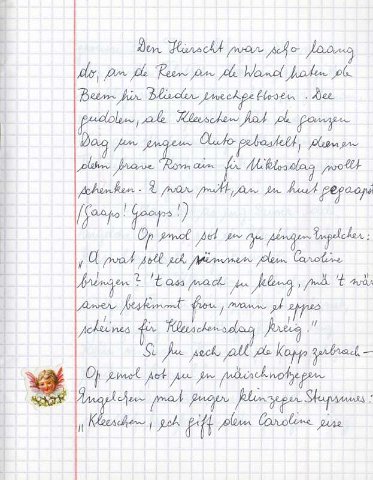 Den Hierscht war scho laang
do, an de Reen an de Wand haten de
Beem hir Blieder ewechgeblosen. Dee
gudden, ale Kleeschen hat de ganzen
Dag un engem Auto gebastelt, deenen
dem brave Romain fir Niklosdag wollt
schenken. E war midd, an en huet gegaapst
(Gaaps! Gaaps!)
Op emol sot en zu séngen Engelcher:
„A wat soll ech nëmmen dem Caroline
bréngen? 't ass nach su kleng, mä 't wär
awer bestëmmt frou, wann et eppes
schéines fir Kleeschensdag kréig."
Si hu sech all de Kapp zerbrach –
Op emol sot su en näischnotzegen
Engelchen mat enger klinzeger Stupsnues:
„Kleeschen, ech giff dem Caroline eise